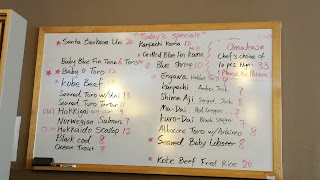 "Today's specials"
* Santa Barbara Uni 20
Baby Blue Fin Tuna 6 Toro
* Baby O Toro 12
* Kobe Beef
Seared Toro w/Uni 13
Seared Toro Tartar 11
Hokkigai
Norwegian Salmon 7
Hokkaido Scallop 12
Black cod 8
Ocean Trout 7
Kanpachi Kama 15
* Grilled Blue fin Kama
* Blue Shrimp 10
Engawa Halibut
Kanpachi Amber Jack
Shima Aji Striped Jack 8
Ma-Dai Red Snapper 7
Kuro-Dai Black Snapper 7
Albacore Toro w/Ankimo 8
* Seared Baby Lobster 8
* Kobe Beef Fried Rice 20
Omakase
Chef's choice of
10 pcs Nigiri 33
! Please No Rolls